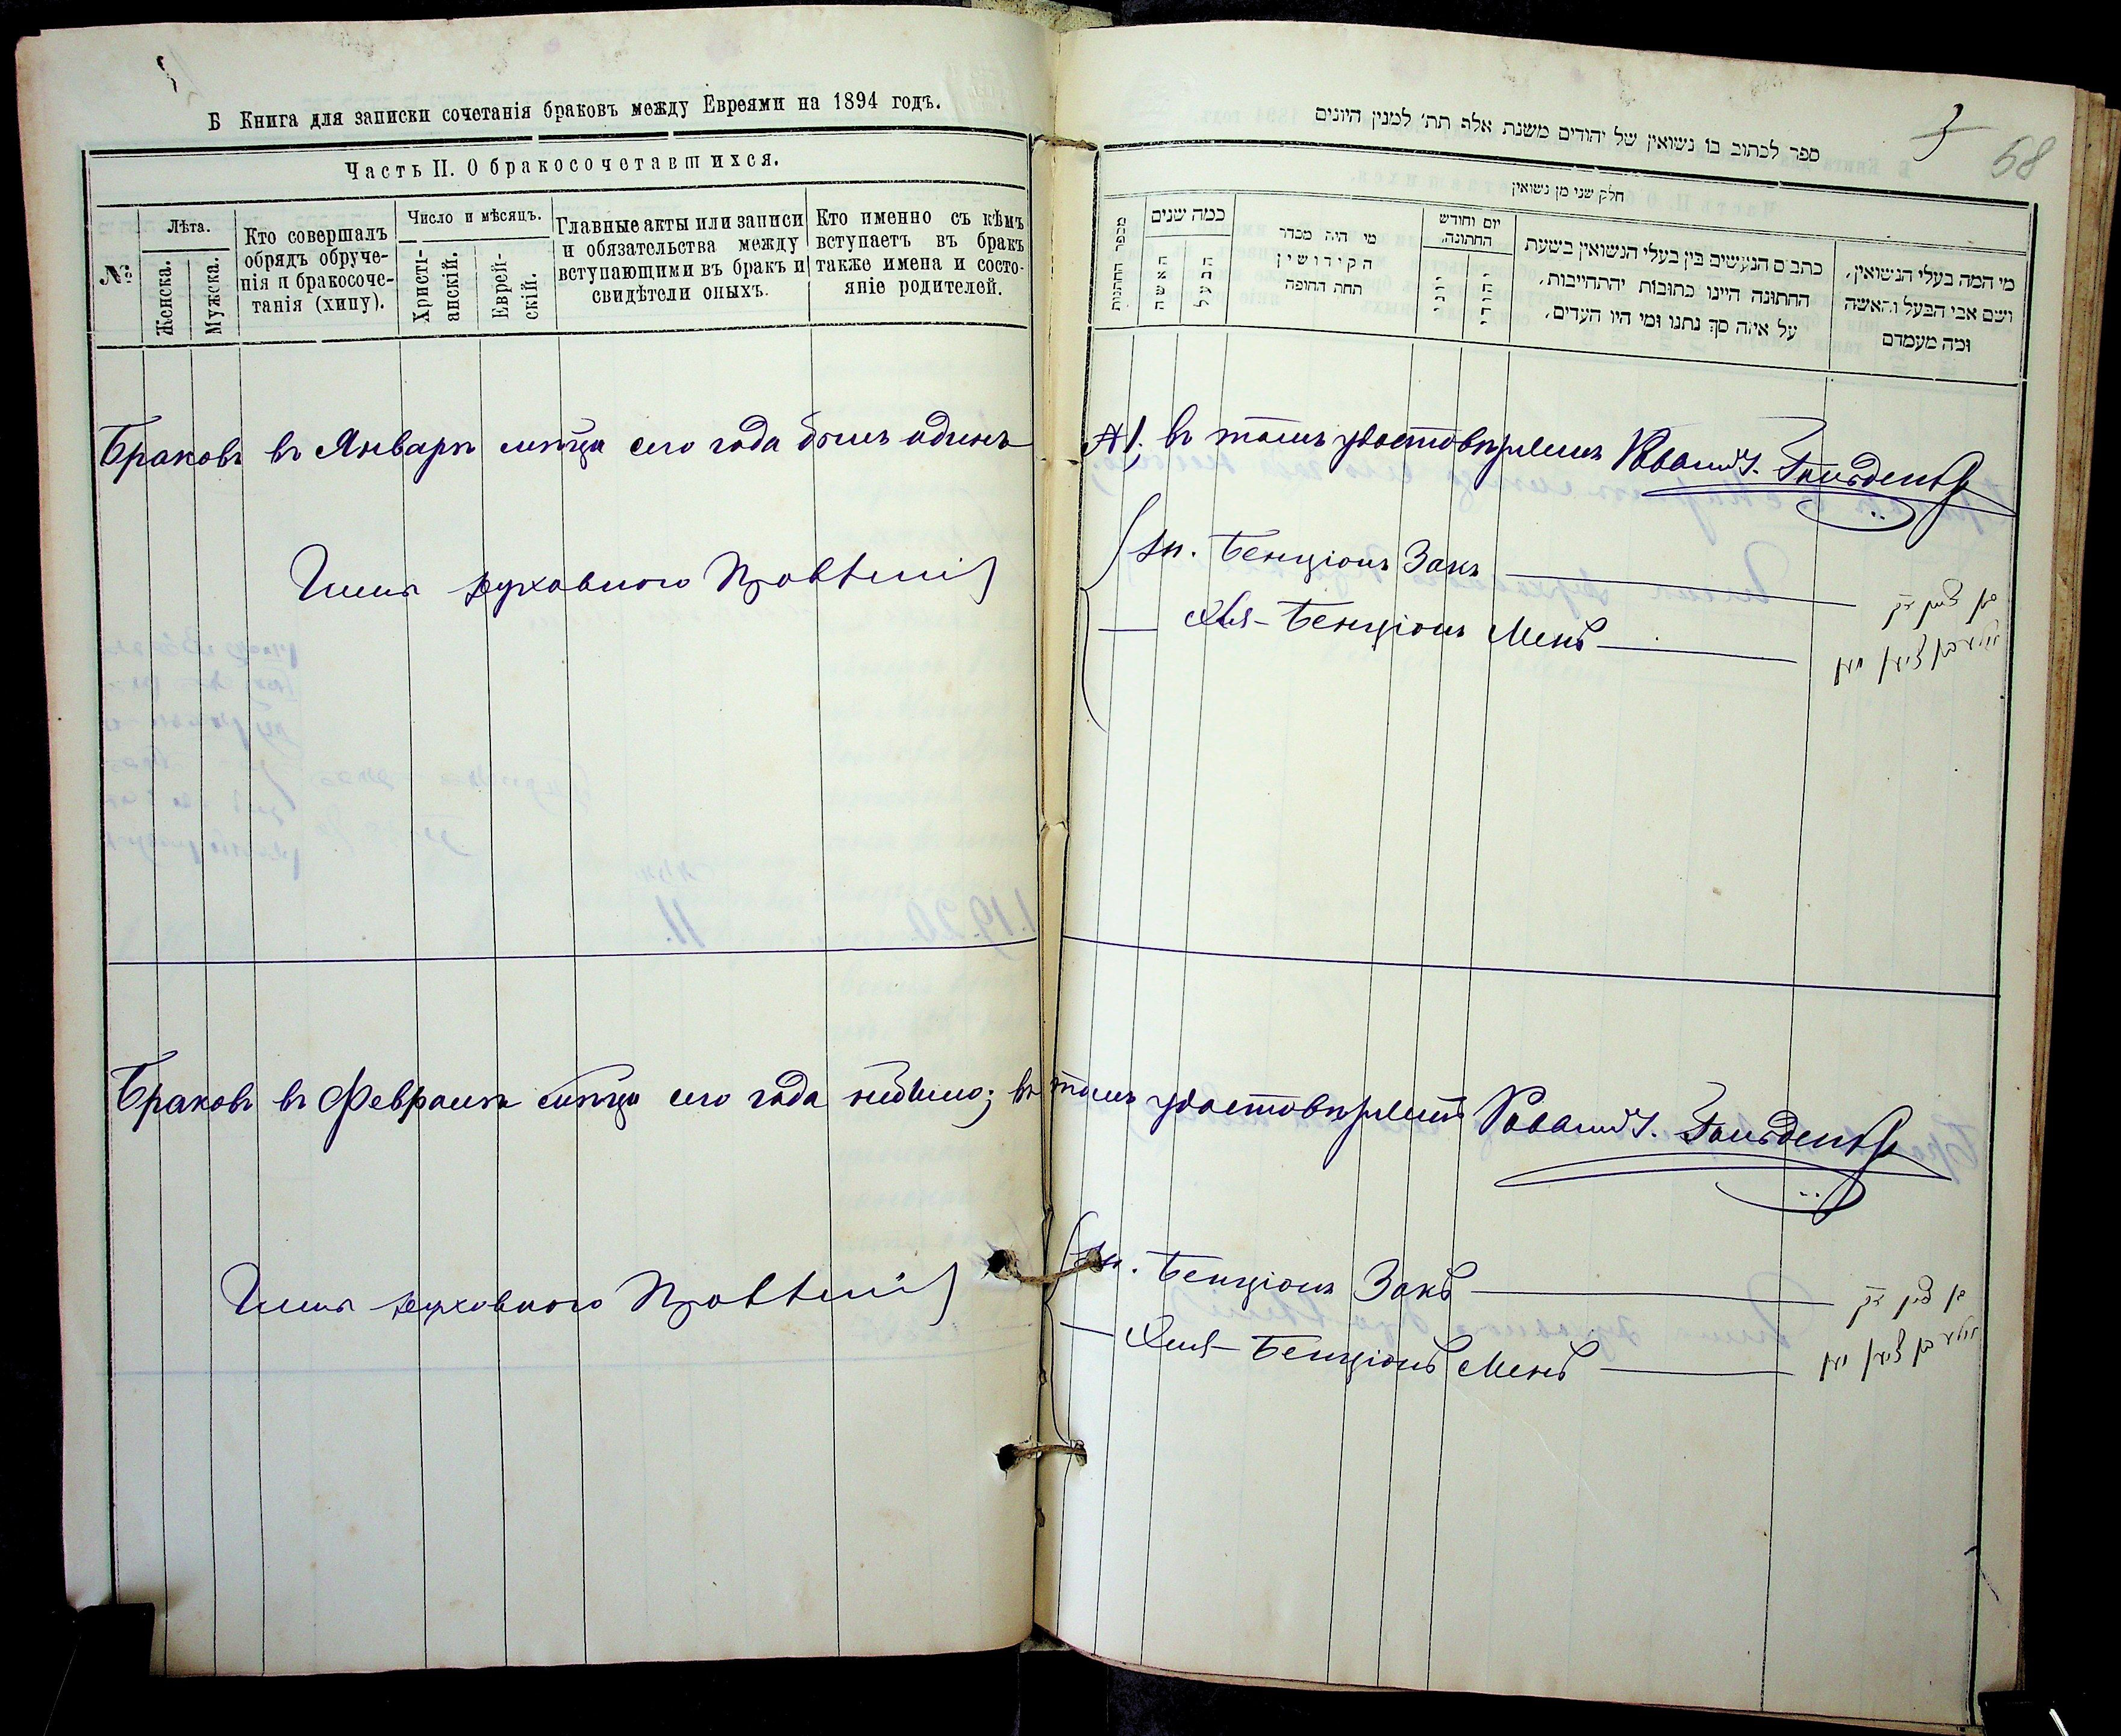 Б Книга для записки сочетанія браковъ между Евреями на 1894 годъ.
Часть II. О бракосочетавшихся.
№
Лѣта.
Женска.
Мужска.
Кто совершалъ
обрядъ обруче-
нія и бракосоче-
танія (хипу).
Число и мѣсяцъ.
Христі-
анскій.
Еврей-
скій.
Главные акты или записи
и обязательства между
вступающими въ бракъ и
свидѣтели оныхъ.
Кто именно съ кѣмъ
вступаетъ въ бракъ
также имена и состо-
яніе родителей.
Браковъ въ Январѣ м-цѣ сего года былъ одинъ
Члены духовного Правленія
Браковъ въ Февралѣ м-цѣ сего года небыло; въ
Члены духовного Правленія
3
68
ספר לכתוב בו נשואין של יהודים משנת אלף תת׳ למנין היונים
חלק שני מן נשואין
מספר החתונות
כמה שנים
האשה
הבעל
מי היה מסדר
הקידושין
תחת החופה
יום וחודש
החתונה
יוני
יהודי
כתבים הנעשים בין בעלי הנשואין בשעת
החתונה היינו כתובות יהתחייבות,
על איזה סך נתנו ומי היו העדים,
מי המה בעלי הנשואין,
ושם אבי הבעל והאשה
ומה מעמדם
№1; въ томъ удостовѣряемъ Раввинъ
Бенціонъ Закъ
בן ציון זק
Бенціонъ Менъ
בן ציון מן
томъ удостовѣряемъ Раввинъ
Бенціонъ Закъ
בן ציון זק
Бенціонъ Менъ
בן ציון מן